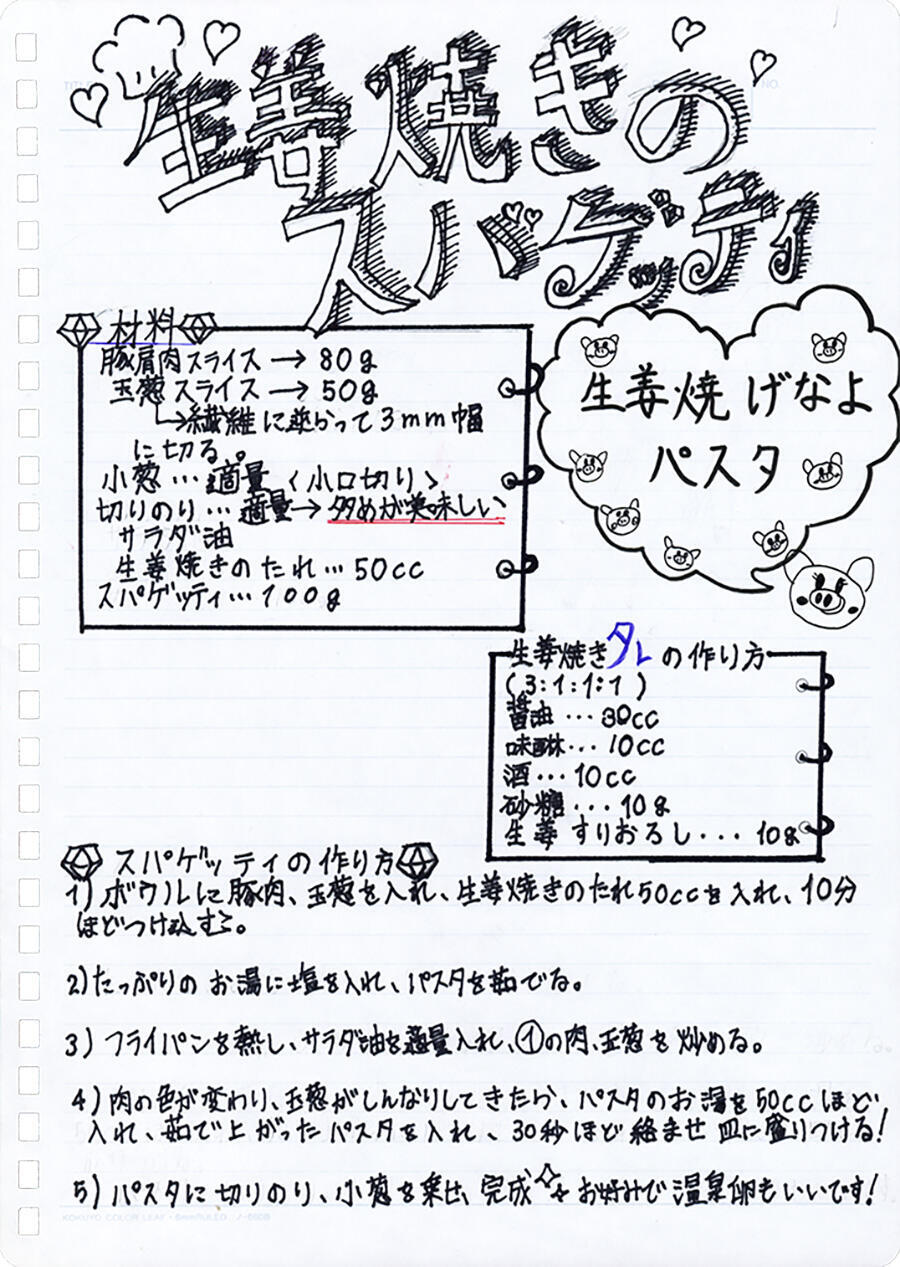 生姜焼きの
スパゲッティ
材料
豚肩肉スライス→80g
玉葱スライス→50g
繊維に逆らって3mm幅
に切る。
小葱…適量(小口切り)
切りのり…適量→多めが美味しい
サラダ油
生姜焼きのたれ…50cc
スパゲッティ…100g
生姜焼げなよ
パスタ
生姜焼きタレの作り方
(3:1:1:1)
醤油…30cc
味醂…10cc
酒…10cc
砂糖...10g
生姜すりおろし...10g
スパゲッティの作り方
1)ボウルに豚肉、玉葱を入れ、生姜焼きのたれ50ccを入れ、10分
ほどつけ込む。
2)たっぷりのお湯に塩を入れ、パスタを茹でる。
3)フライパンを熱し、サラダ油を適量入れ、①の肉、玉葱を炒める。
4)肉の色が変わり、玉葱がしんなりしてきたら、パスタのお湯を50ccほど
入れ、茹で上がったパスタを入れ、30秒ほど絡ませ皿に盛りつける!
5)パスタに切りのり、小葱を乗せ、完成 お好みで温泉卵もいいです!
KOKUYO COLOR LEAF